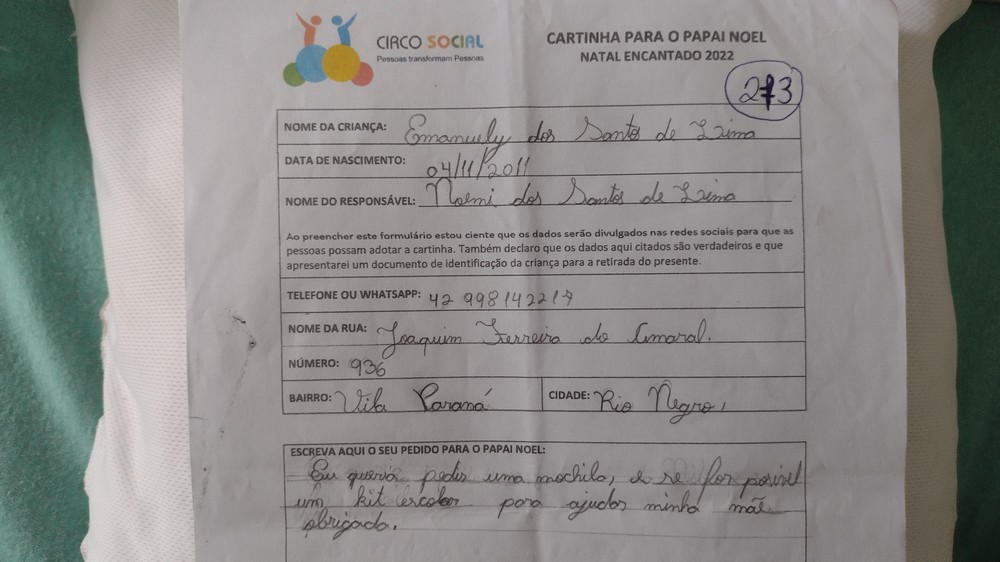 CIRCO SOCIAL
Pessoas transformam Pessoas
CARTINHA PARA O PAPAI NOEL
NATAL ENCANTADO 2022
273
NOME DA CRIANÇA: Emanuely dos Santos de Lima
DATA DE NASCIMENTO: 04/11/2011
NOME DO RESPONSÁVEL: Noemi dos Santos de Lima
Ao preencher este formulário estou ciente que os dados serão divulgados nas redes sociais para que as
pessoas possam adotar a cartinha. Também declaro que os dados aqui citados são verdadeiros e que
apresentarei um documento de identificação da criança para a retirada do presente.
TELEFONE OU WHATSAPP: 42 998142217
NOME DA RUA: Joaquim Ferreira do Amaral.
NÚMERO: 936
BAIRRO: Vila Paraná CIDADE: Rio Negro,
ESCREVA AQUI O SEU PEDIDO PARA O PAPAI NOEL:
Eu queria pedir uma mochila, e se for posivel
um kit escolar para ajudar minha mãe
obrigada.